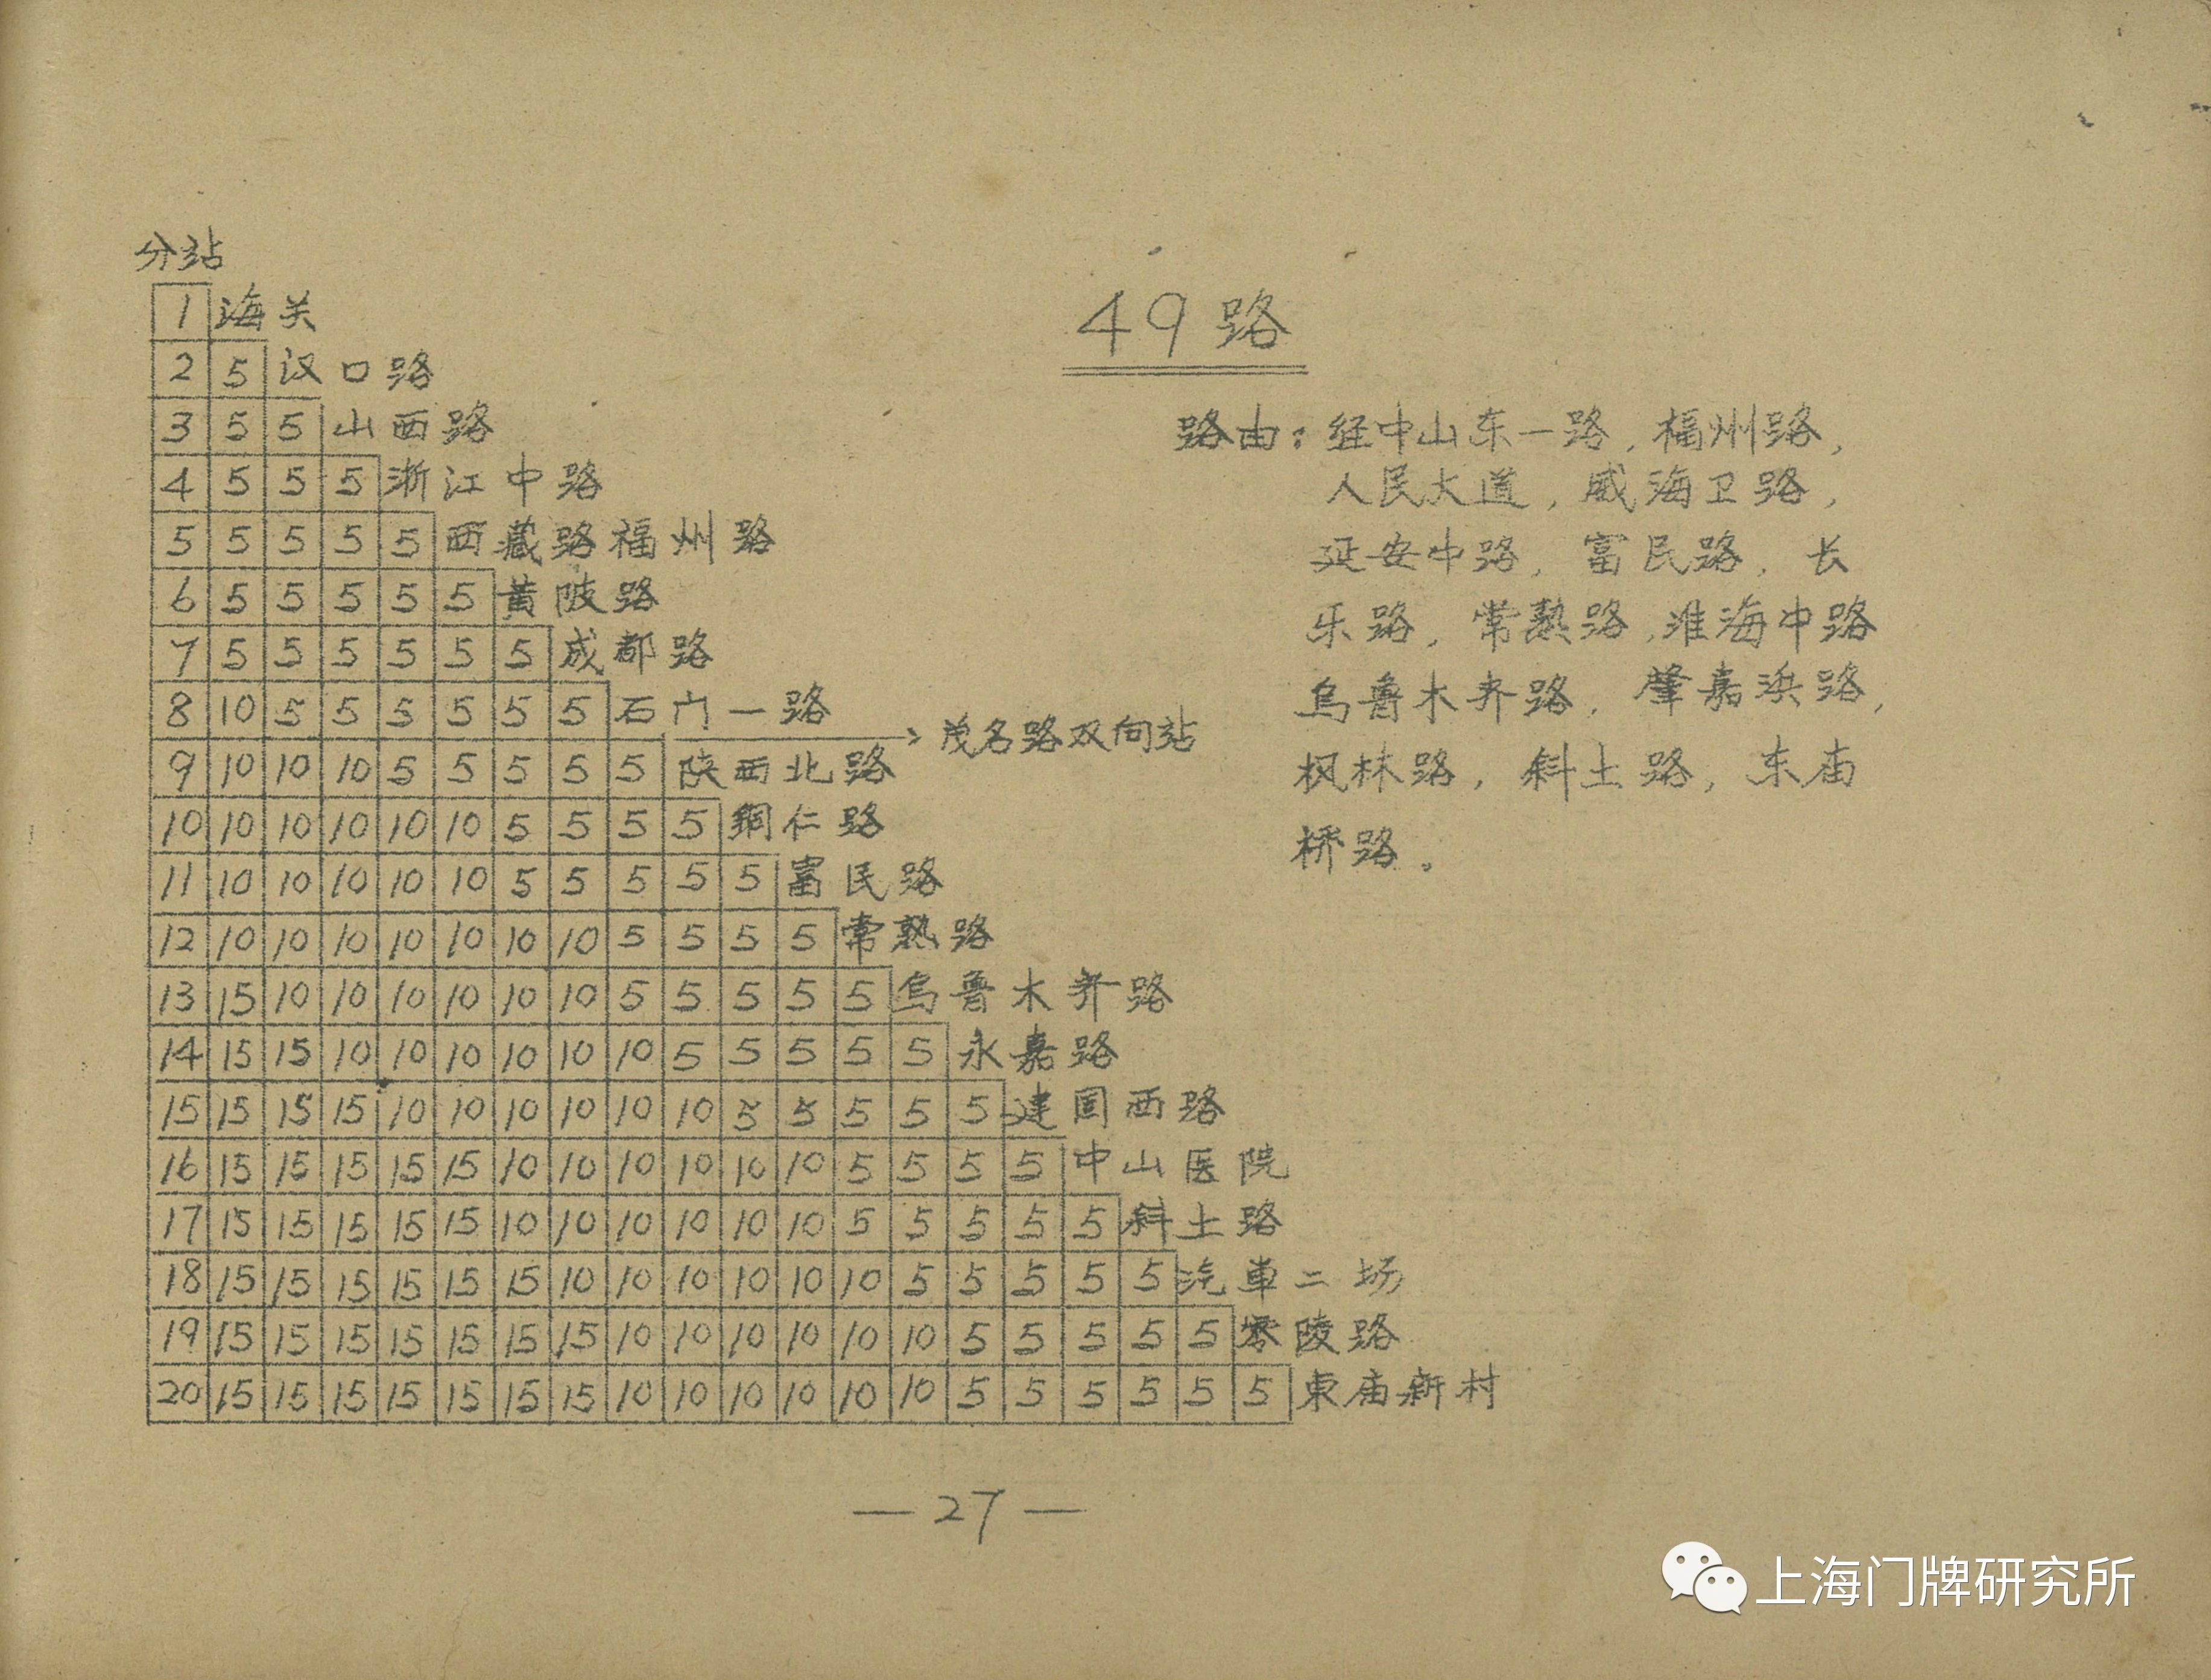 分站
1 海关
2 5 汉口路
3 5 5 山西路
4 5 5 5 浙江中路
5 5 5 5 5 西藏路福州路
6 5 5 5 5 5 黄陂路
7 5 5 5 5 5 5 成都路
8 10 5 5 5 5 5 5 石门一路
茂名路双向站
9 10 10 10 5 5 5 5 5 陕西北路
10 10 10 10 10 10 5 5 5 5 銅仁路
11 10 10 10 10 10 5 5 5 5 5 富民路
12 10 10 10 10 10 10 10 5 5 5 5 常熟路
13 15 10 10 10 10 10 10 5 5 5 5 5 乌鲁木齐路
14 15 15 10 10 10 10 10 10 5 5 5 5 5 永嘉路
15 15 15 15 10 10 10 10 10 10 5 5 5 5 5 建国西路
16 15 15 15 15 15 10 10 10 10 10 10 5 5 5 5 中山医院
17 15 15 15 15 15 10 10 10 10 10 10 5 5 5 5 5 斜土路
18 15 15 15 15 15 15 10 10 10 10 10 10 5 5 5 5 5 汽車二场
19 15 15 15 15 15 15 15 10 10 10 10 10 10 5 5 5 5 5 零陵路
20 15 15 15 15 15 15 15 10 10 10 10 10 10 5 5 5 5 5 5 東庙新村
49路
路由：经中山东一路，福州路，
人民大道，威海卫路，
延安中路，富民路，长
乐路，常熟路，淮海中路
乌鲁木齐路，肇嘉浜路，
枫林路，斜土路，东庙
桥路。
— 27 —
上海门牌研究所